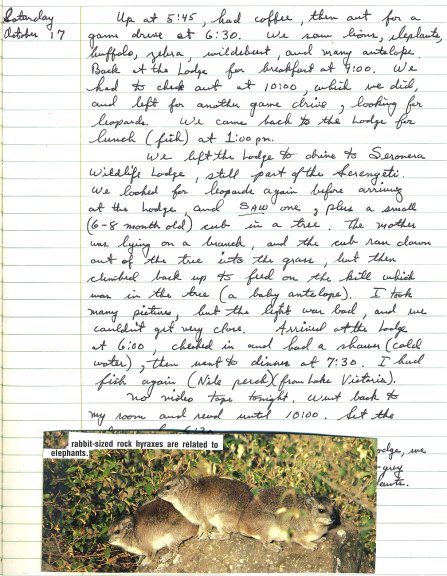 Saturday
October 17
Up at 5:45, had coffee, then out for a
game drive at 6:30. We saw lions, elephants,
buffalo, zebra, wildebeest, and many antelope.
Back at the Lodge for breakfast at 9:00. We
had to check out at 10:00, which we did,
and left for another game drive, looking for
leopards. We came back to the Lodge for
lunch (fish) at 1:00 pm.
We left the Lodge to drive to Seronera
Wildlife Lodge, still part of the Serengeti.
We looked for leopards again before arriving
at the Lodge, and SAW one, plus a small
(6-8 month old) cub in a tree. The mother
was lying on a branch, and the cub ran down
out of the tree into the grass, but then
climbed back up to feed on the kill which
was in the tree (a baby antelope). I took
many pictures, but the light was bad, and we
couldn't get very close. Arrived at the Lodge
at 6:00, checked in and had a shower (cold
water), then went to dinner at 7:30. I had
fish again (Nile perch) (from Lake Victoria).
No video tape tonight. Went back to
my room and read until 10:00. Set the
rabbit-sized rock hyraxes are related to
elephants.
odge, we
-grey